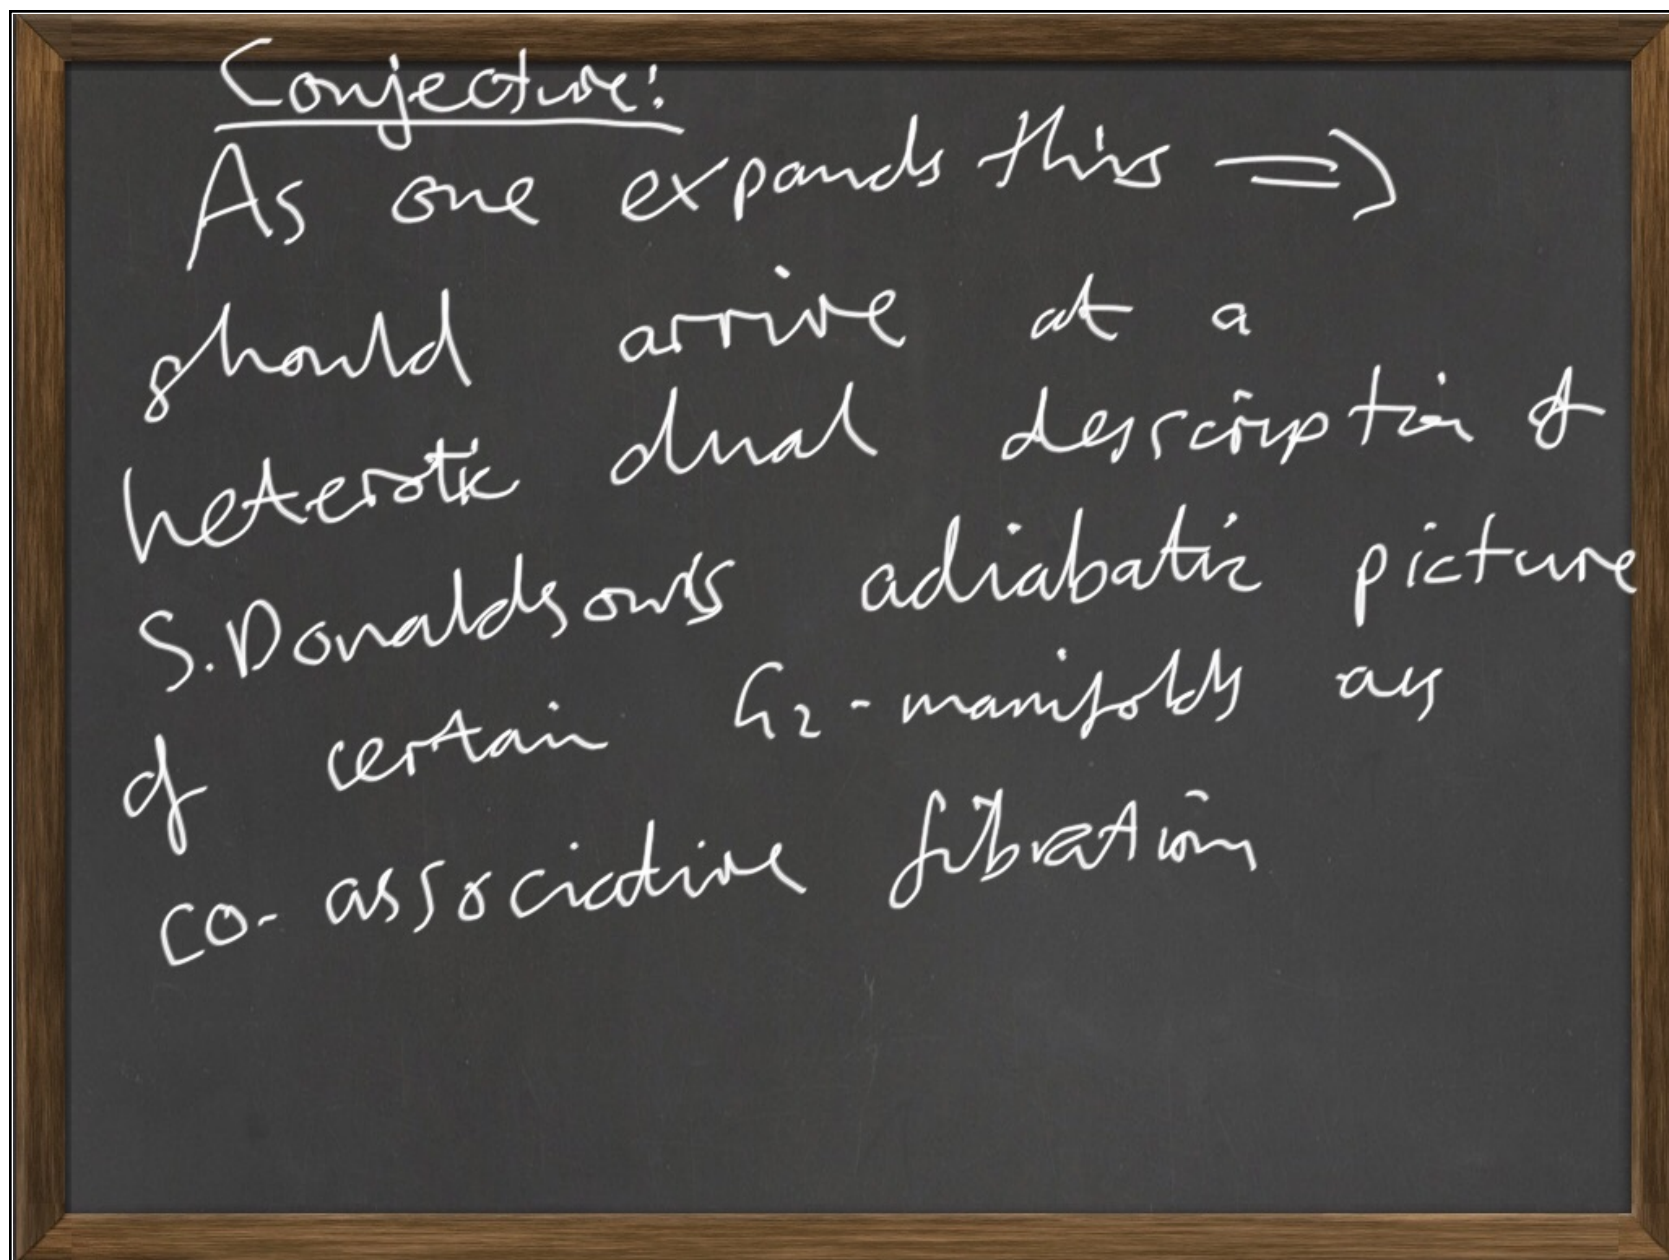 Conjecture:
As one expands this ⇒
should arrive at a
heterotic dual description of
S. Donaldson's adiabatic picture
of certain G₂-manifolds as
co-associative fibration